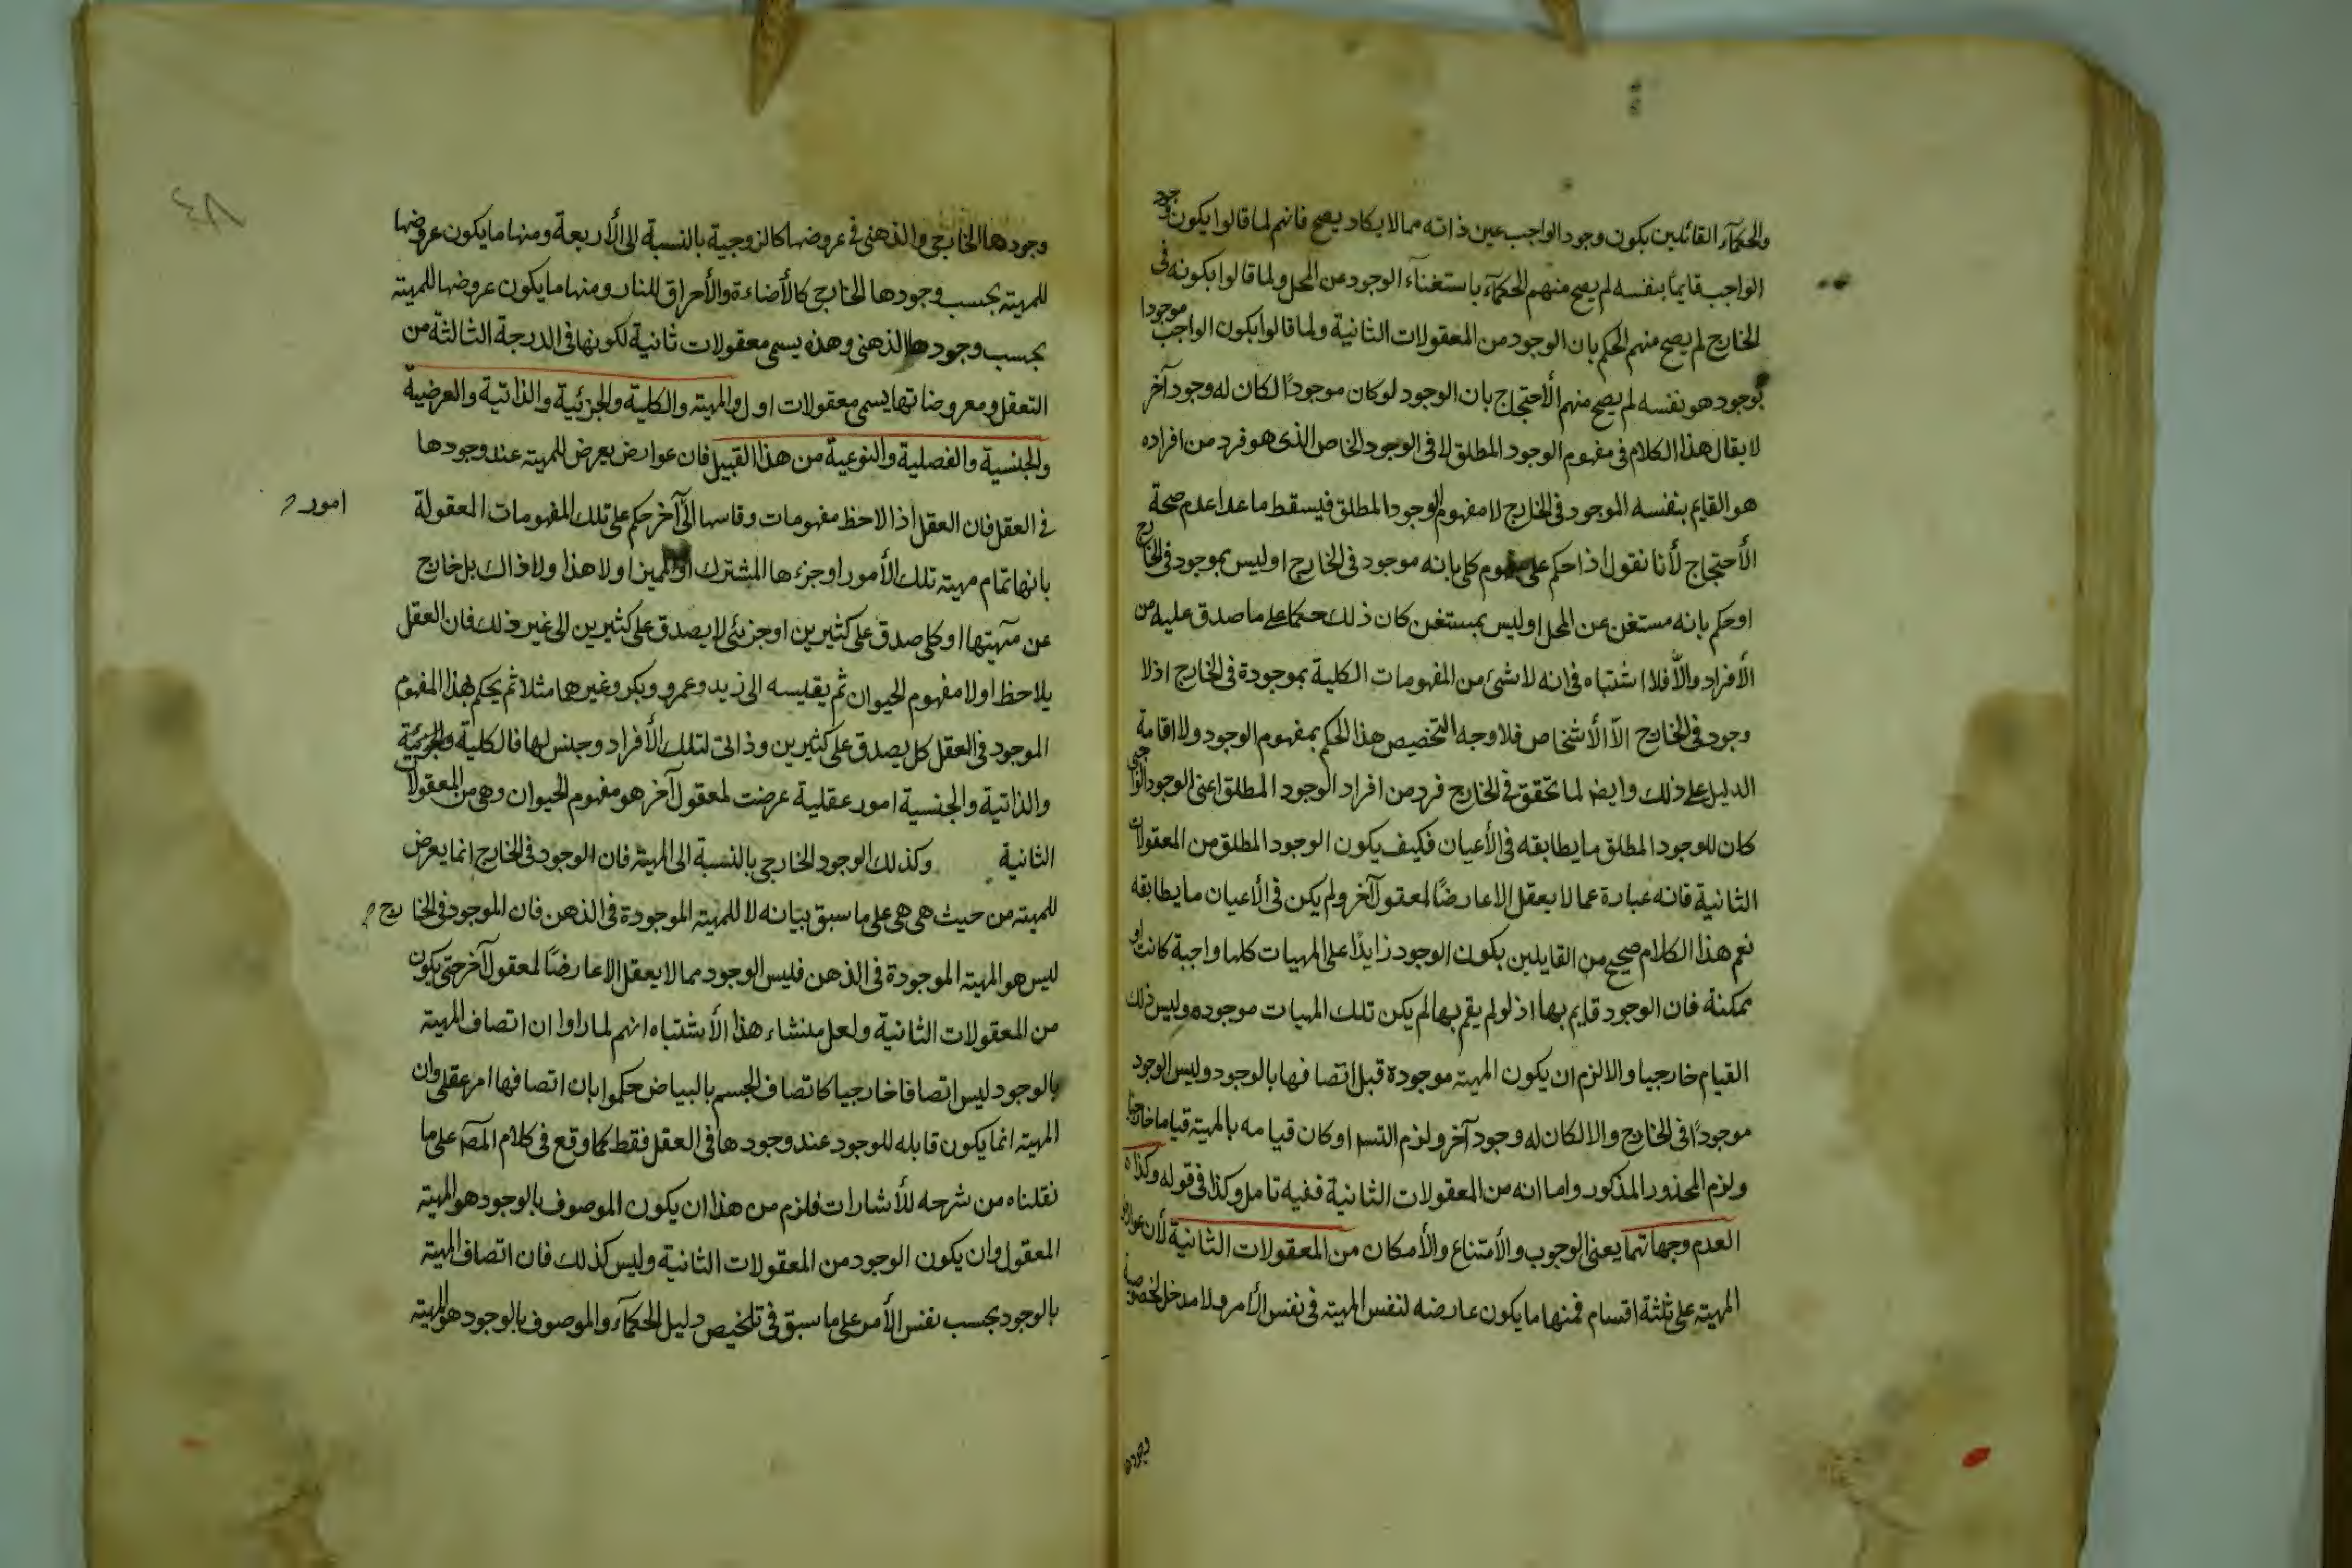 والحكمآء القائلين بكون وجود الواجب عين ذاته مما لا يكاد يصح فانهم لما قالوا بكون وجود
الواجب قايمًا بنفسه لم يصح منهم الحكمآء باستغنآء الوجود عن المحل ولما قالوا بكونه فى
الخارج لم يصح منهم الحكم بان الوجود من المعقولات الثانية ولما قالوا بكون الواجب موجودا
بوجود هو نفسه لم يصح منهم الأحتجاج بان الوجود لو كان موجودًا لكان له وجود آخر
لا يقال هذا الكلام فى مفهوم الوجود المطلق لا فى الوجود الخاص الذى هو فرد من افراده
هو القايم بنفسه الموجود فى الخارج لا مفهوم الوجود المطلق فيسقط ما عدا عدم صحة
الأحتجاج لأنا نقول اذا حكم على مفهوم كلى بانه موجود فى الخارج او ليس بموجود فى الخارج
او حكم بانه مستغن عن المحل او ليس بمستغن كان ذلك حكما على ما صدق عليه من
الأفراد والّا فلا اشتباه فى انه لا شئ من المفهومات الكلية بموجودة فى الخارج اذ لا
وجود فى الخارج الّا الأشخاص فلا وجه التخصيص هذا الحكم بمفهوم الوجود ولا اقامة
الدليل على ذلك وايضا لما تحقق فى الخارج فرد من افراد الوجود المطلق اعنى الوجود الواجبى
كان للوجود المطلق ما يطابقه فى الأعيان فكيف يكون الوجود المطلق من المعقولات
الثانية فانه عبارة عما لا يعقل الا عارضًا لمعقول آخر ولم يكن فى الأعيان ما يطابقه
نعم هذا الكلام صحيح من القايلين بكون الوجود زايدًا على المهيات كلها واجبة كانت او
ممكنة فان الوجود قايم بها اذ لو لم يقم بها لم يكن تلك المهيات موجوده وليس ذلك
القيام خارجيا والا لزم ان يكون المهيته موجودة قبل اتصافها بالوجود وليس الوجود
موجودًا فى الخارج والا لكان له وجود آخر ولزم التسم او كان قيامه بالمهيته قياما خارجيا
ولزم المحذور المذكور واما انه من المعقولات الثانية ففيه تامل وكذا فى قوله وكذا
العدم وجهاتهما يعنى الوجوب والأمتناع والأمكان من المعقولات الثانية لأن عوارض
المهيته على ثلثة اقسام فمنها ما يكون عارضه لنفس المهيته فى نفس الأمر ولا مدخل لخصوصية
وجودها
وجودها الخارجى والذهنى فى عروضها كالزوجية بالنسبة الى الأربعة ومنها ما يكون عروضها
للمهيته بحسب وجودها الخارج كالأضاءة والأحراق للنار ومنها ما يكون عروضها للمهيته
بحسب وجودها الذهنى وهذه يسمى معقولات ثانية لكونها فى الدرجة الثالثة من
التعقل ومعروضاتها يسمى معقولات اول والمهيته والكلية والجزئية والذاتية والعرضية
والجنسية والفصلية والنوعية من هذا القبيل فان عوارض يعرض للمهيته عند وجودها
فى العقل فان العقل اذا لاحظ مفهومات وقاسها الى آخر حكم على تلك المفهومات المعقولة
امور
بانها تمام مهيته تلك الأمور او جزءها المشترك او المميز او لا هذا ولا ذاك بل خارج
عن مهيتها او كلى صدق على كثيرين او جزئى لا يصدق على كثيرين الى غير ذلك فان العقل
يلاحظ اولا مفهوم الحيوان ثم يقليسه الى زيد وعمرو وبكر وغيرها مثلا ثم يحكم بهذا المفهوم
الموجود فى العقل كل يصدق على كثيرين وذاتى لتلك الأفراد وجنس لها فالكلية والجزئية
والذاتية والجنسية امور عقلية عرضت لمعقول آخر هو مفهوم الحيوان وهى من المعقولات
الثانية وكذلك الوجود الخارجى بالنسبة الى المهيته فان الوجود فى الخارج انما يعرض
للمهيته من حيث هى هى على ما سبق بيانه لا للمهيته الموجودة فى الذهن فان الموجود فى الخارج
ليس هو المهيته الموجودة فى الذهن فليس الوجود مما لا يعقل الا عارضًا لمعقول آخر حتى يكون
من المعقولات الثانية ولعل منشاء هذا الأشتباه انهم لما راوا ان اتصاف المهيته
بالوجود ليس اتصافا خارجيا كاتصاف الجسم بالبياض حكموا بان اتصافها امر عقلى وان
المهيته انما يكون قابله للوجود عند وجودها فى العقل فقط كما وقع فى كلام المصَ على ما
نقلناه من شرحه للأشارات فلزم من هذا ان يكون الموصوف بالوجود هو المهيته
المعقول وان يكون الوجود من المعقولات الثانية وليس كذلك فان اتصاف المهيته
بالوجود بحسب نفس الأمر على ما سبق فى تلخيص دليل الحكمآء والموصوف بالوجود هو المهيته